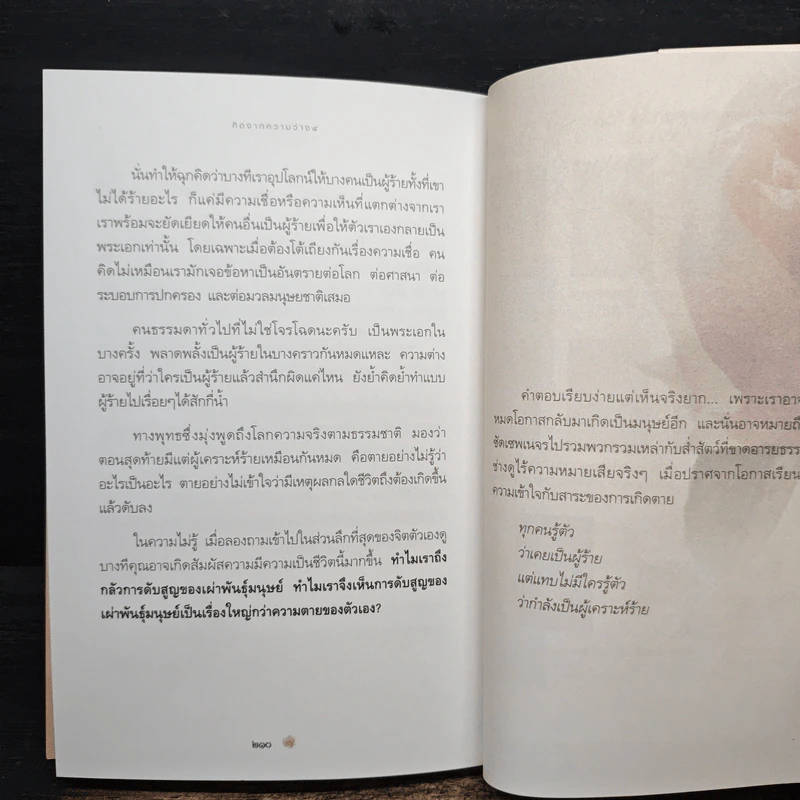 คิดจากความว่าง๔
นั่นทำให้ฉุกคิดว่าบางทีเราอุปโลกน์ให้บางคนเป็นผู้ร้ายทั้งที่เขา
ไม่ได้ร้ายอะไร ก็แค่มีความเชื่อหรือความเห็นที่แตกต่างจากเรา
เราพร้อมจะยัดเยียดให้คนอื่นเป็นผู้ร้ายเพื่อให้ตัวเราเองกลายเป็น
พระเอกเท่านั้น โดยเฉพาะเมื่อต้องโต้เถียงกันเรื่องความเชื่อ คน
คิดไม่เหมือนเรามักเจอข้อหาเป็นอันตรายต่อโลก ต่อศาสนา ต่อ
ระบอบการปกครอง และต่อมวลมนุษยชาติเสมอ
คนธรรมดาทั่วไปที่ไม่ใช่โจรโฉดนะครับ เป็นพระเอกใน
บางครั้ง พลาดพลั้งเป็นผู้ร้ายในบางคราวกันหมดแหละ ความต่าง
อาจอยู่ที่ว่าใครเป็นผู้ร้ายแล้วสำนึกผิดแค่ไหน ยังย้ำคิดย้ำทำแบบ
ผู้ร้ายไปเรื่อยๆได้สักกี่น้ำ
ทางพุทธซึ่งมุ่งพูดถึงโลกความจริงตามธรรมชาติ มองว่า
ตอนสุดท้ายมีแต่ผู้เคราะห์ร้ายเหมือนกันหมด คือตายอย่างไม่รู้ว่า
อะไรเป็นอะไร ตายอย่างไม่เข้าใจว่ามีเหตุผลกลใดชีวิตถึงต้องเกิดขึ้น
แล้วดับลง
ในความไม่รู้ เมื่อลองถามเข้าไปในส่วนลึกที่สุดของจิตตัวเองดู
บางทีคุณอาจเกิดสัมผัสความมีความเป็นชีวิตนี้มากขึ้น ทำไมเราถึง
กลัวการดับสูญของเผ่าพันธุ์มนุษย์ ทำไมเราจึงเห็นการดับสูญของ
เผ่าพันธุ์มนุษย์เป็นเรื่องใหญ่กว่าความตายของตัวเอง?
๒๑๐
คำตอบเรียบง่ายแต่เห็นจริงยาก... เพราะเราอาจ
หมดโอกาสกลับมาเกิดเป็นมนุษย์อีก และนั่นอาจหมายถึ
ซัดเซพเนจรไปรวมพวกรวมเหล่ากับส่ำสัตว์ที่ขาดอารยธรร
ช่างดูไร้ความหมายเสียจริงๆ เมื่อปราศจากโอกาสเรียน
ความเข้าใจกับสาระของการเกิดตาย
ทุกคนรู้ตัว
ว่าเคยเป็นผู้ร้าย
แต่แทบไม่มีใครรู้ตัว
ว่ากำลังเป็นผู้เคราะห์ร้าย